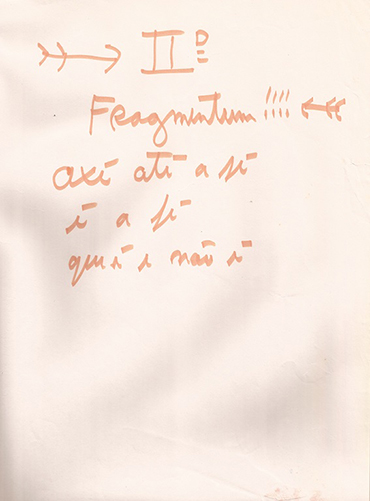 IIº
Fragmentum !!!!
axé até a fé
é a fé
que é e não é